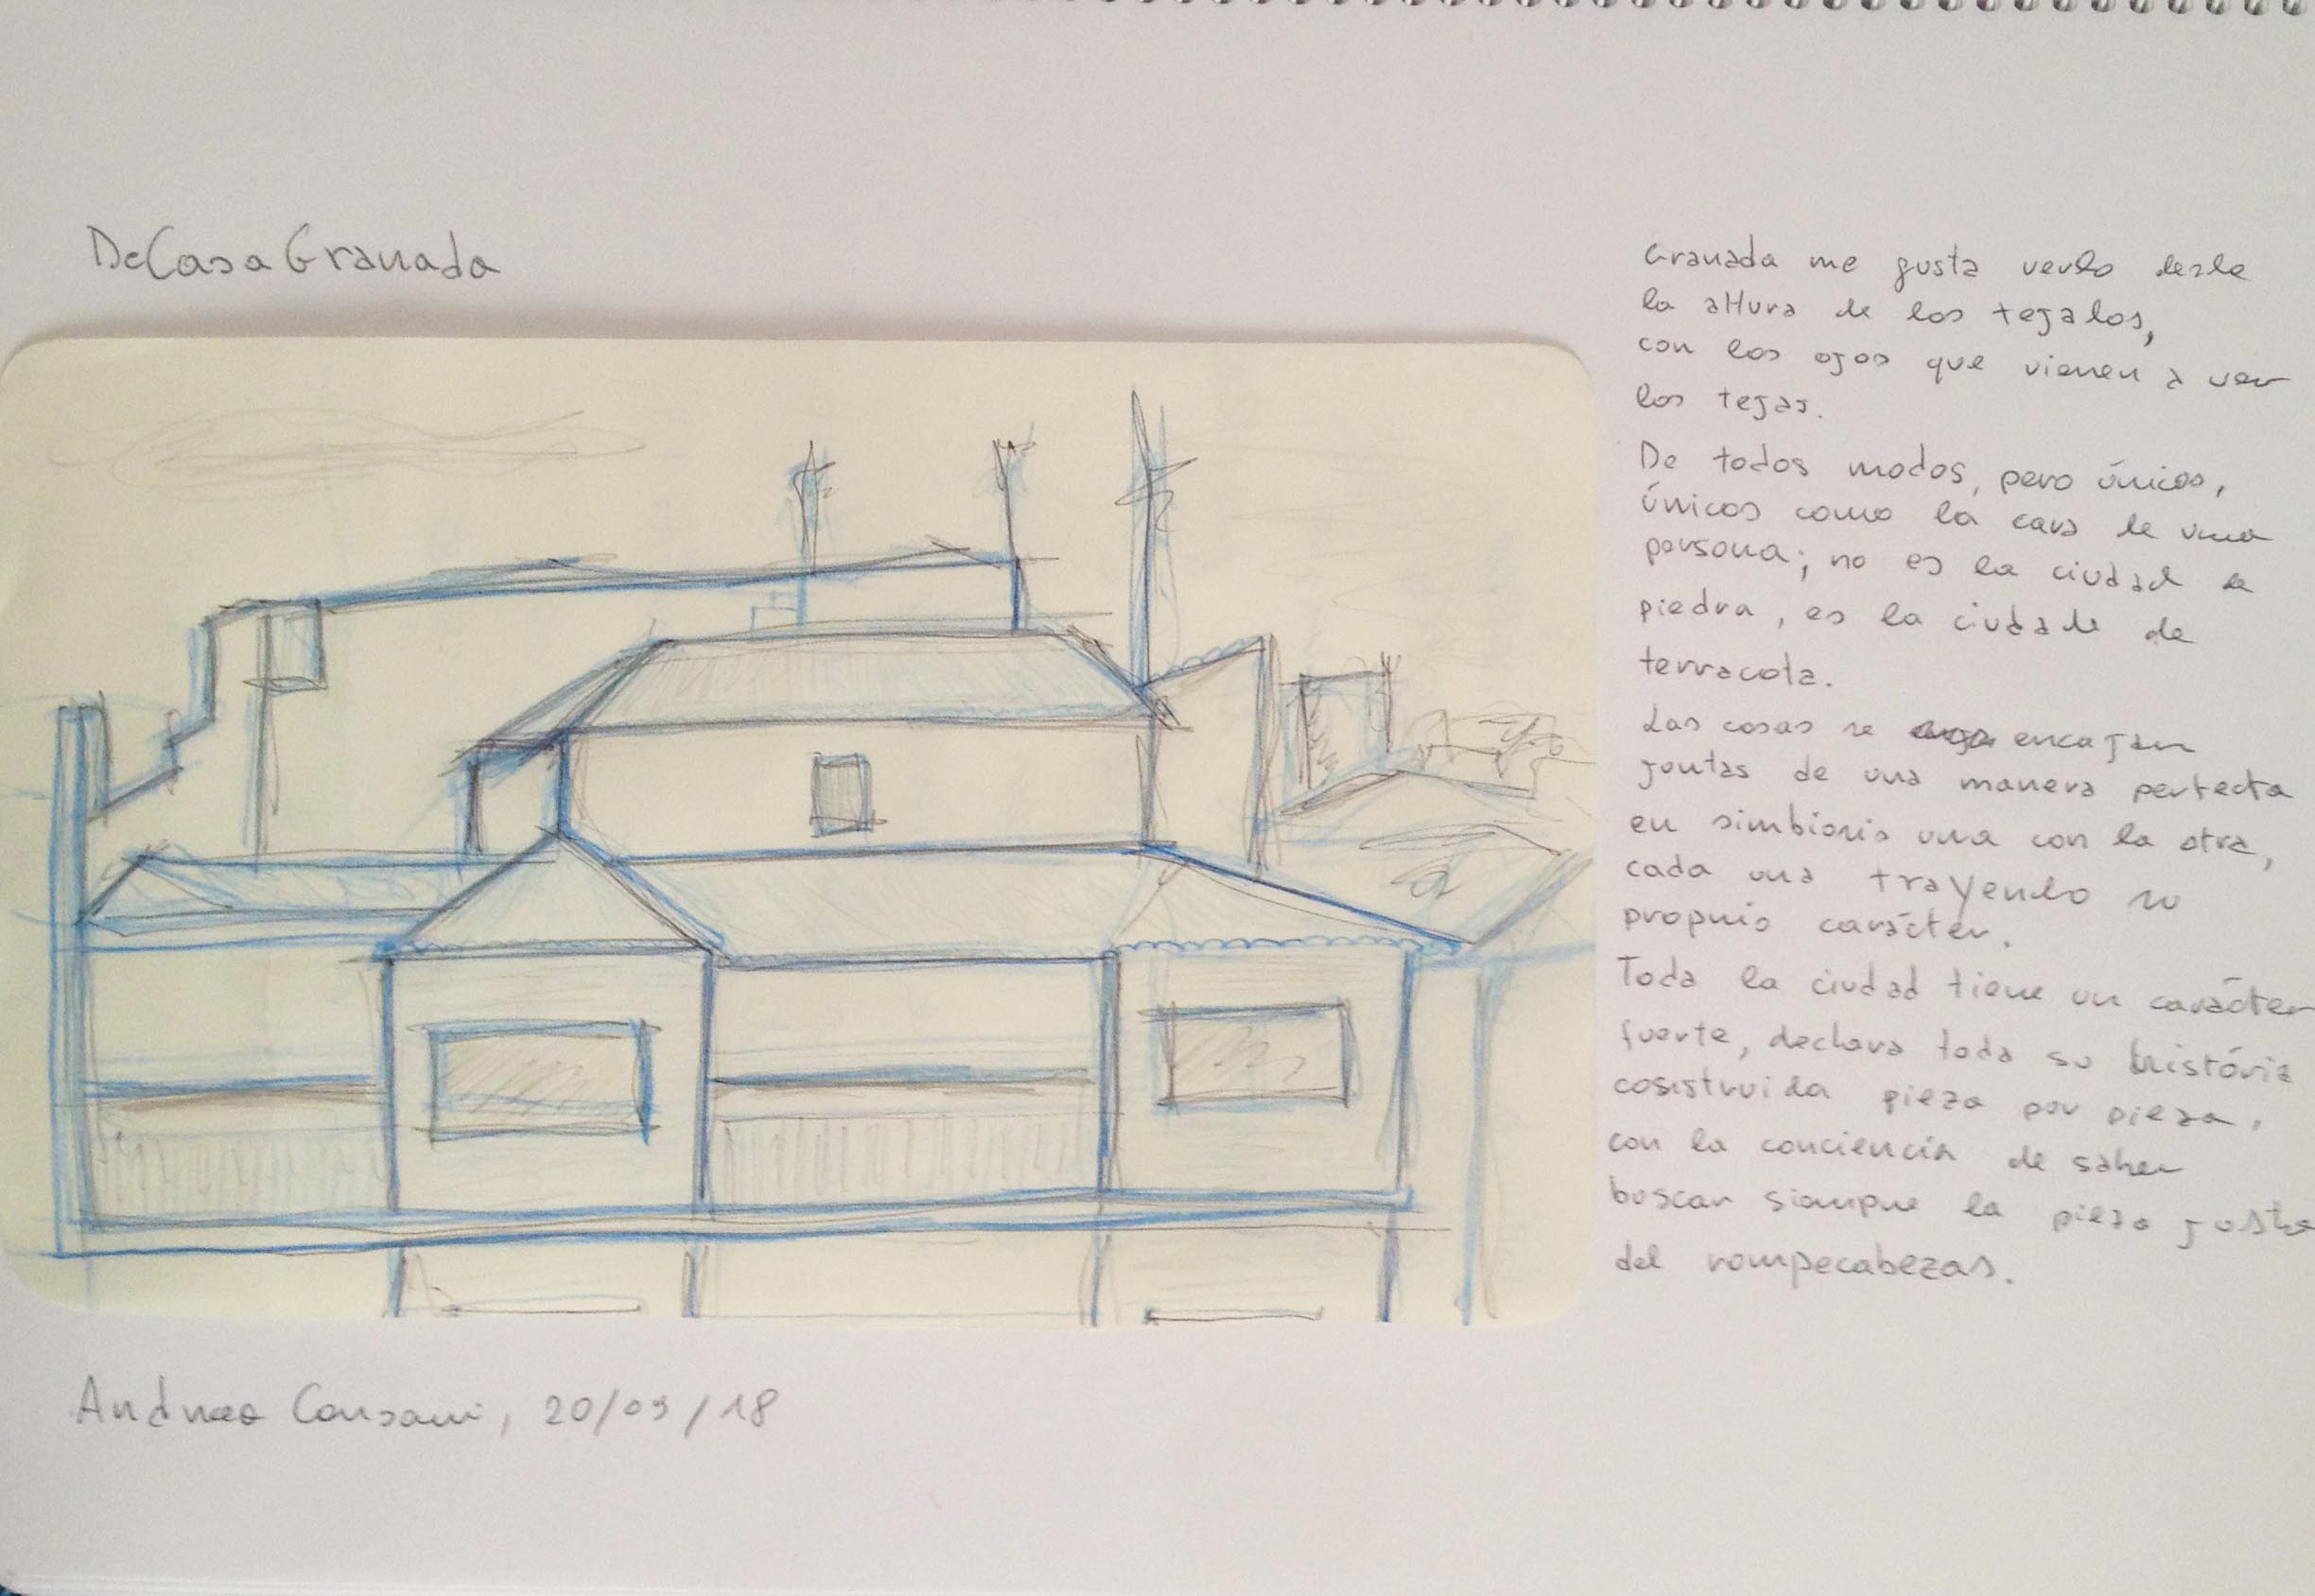 DeCasaGranada
Granada me gusta verlo desde
la altura de los tejados,
con los ojos que vienen a ver
los tejas.
De todos modos, pero únicos,
únicos como la cara de una
persona; no es la ciudad de
piedra, es la ciudade de
terracota.
Las cosas se encajan
juntas de una manera perfecta
en simbiosis una con la otra,
cada una trayendo su
propuis carácter.
Toda la ciudad tiene un carácter
fuerte, declara toda su história
cosistruida pieza por pieza,
con la conciencia de saber
buscar siempre la pieza justa
del rompecabezas.
Andrea Consani, 20/09/18